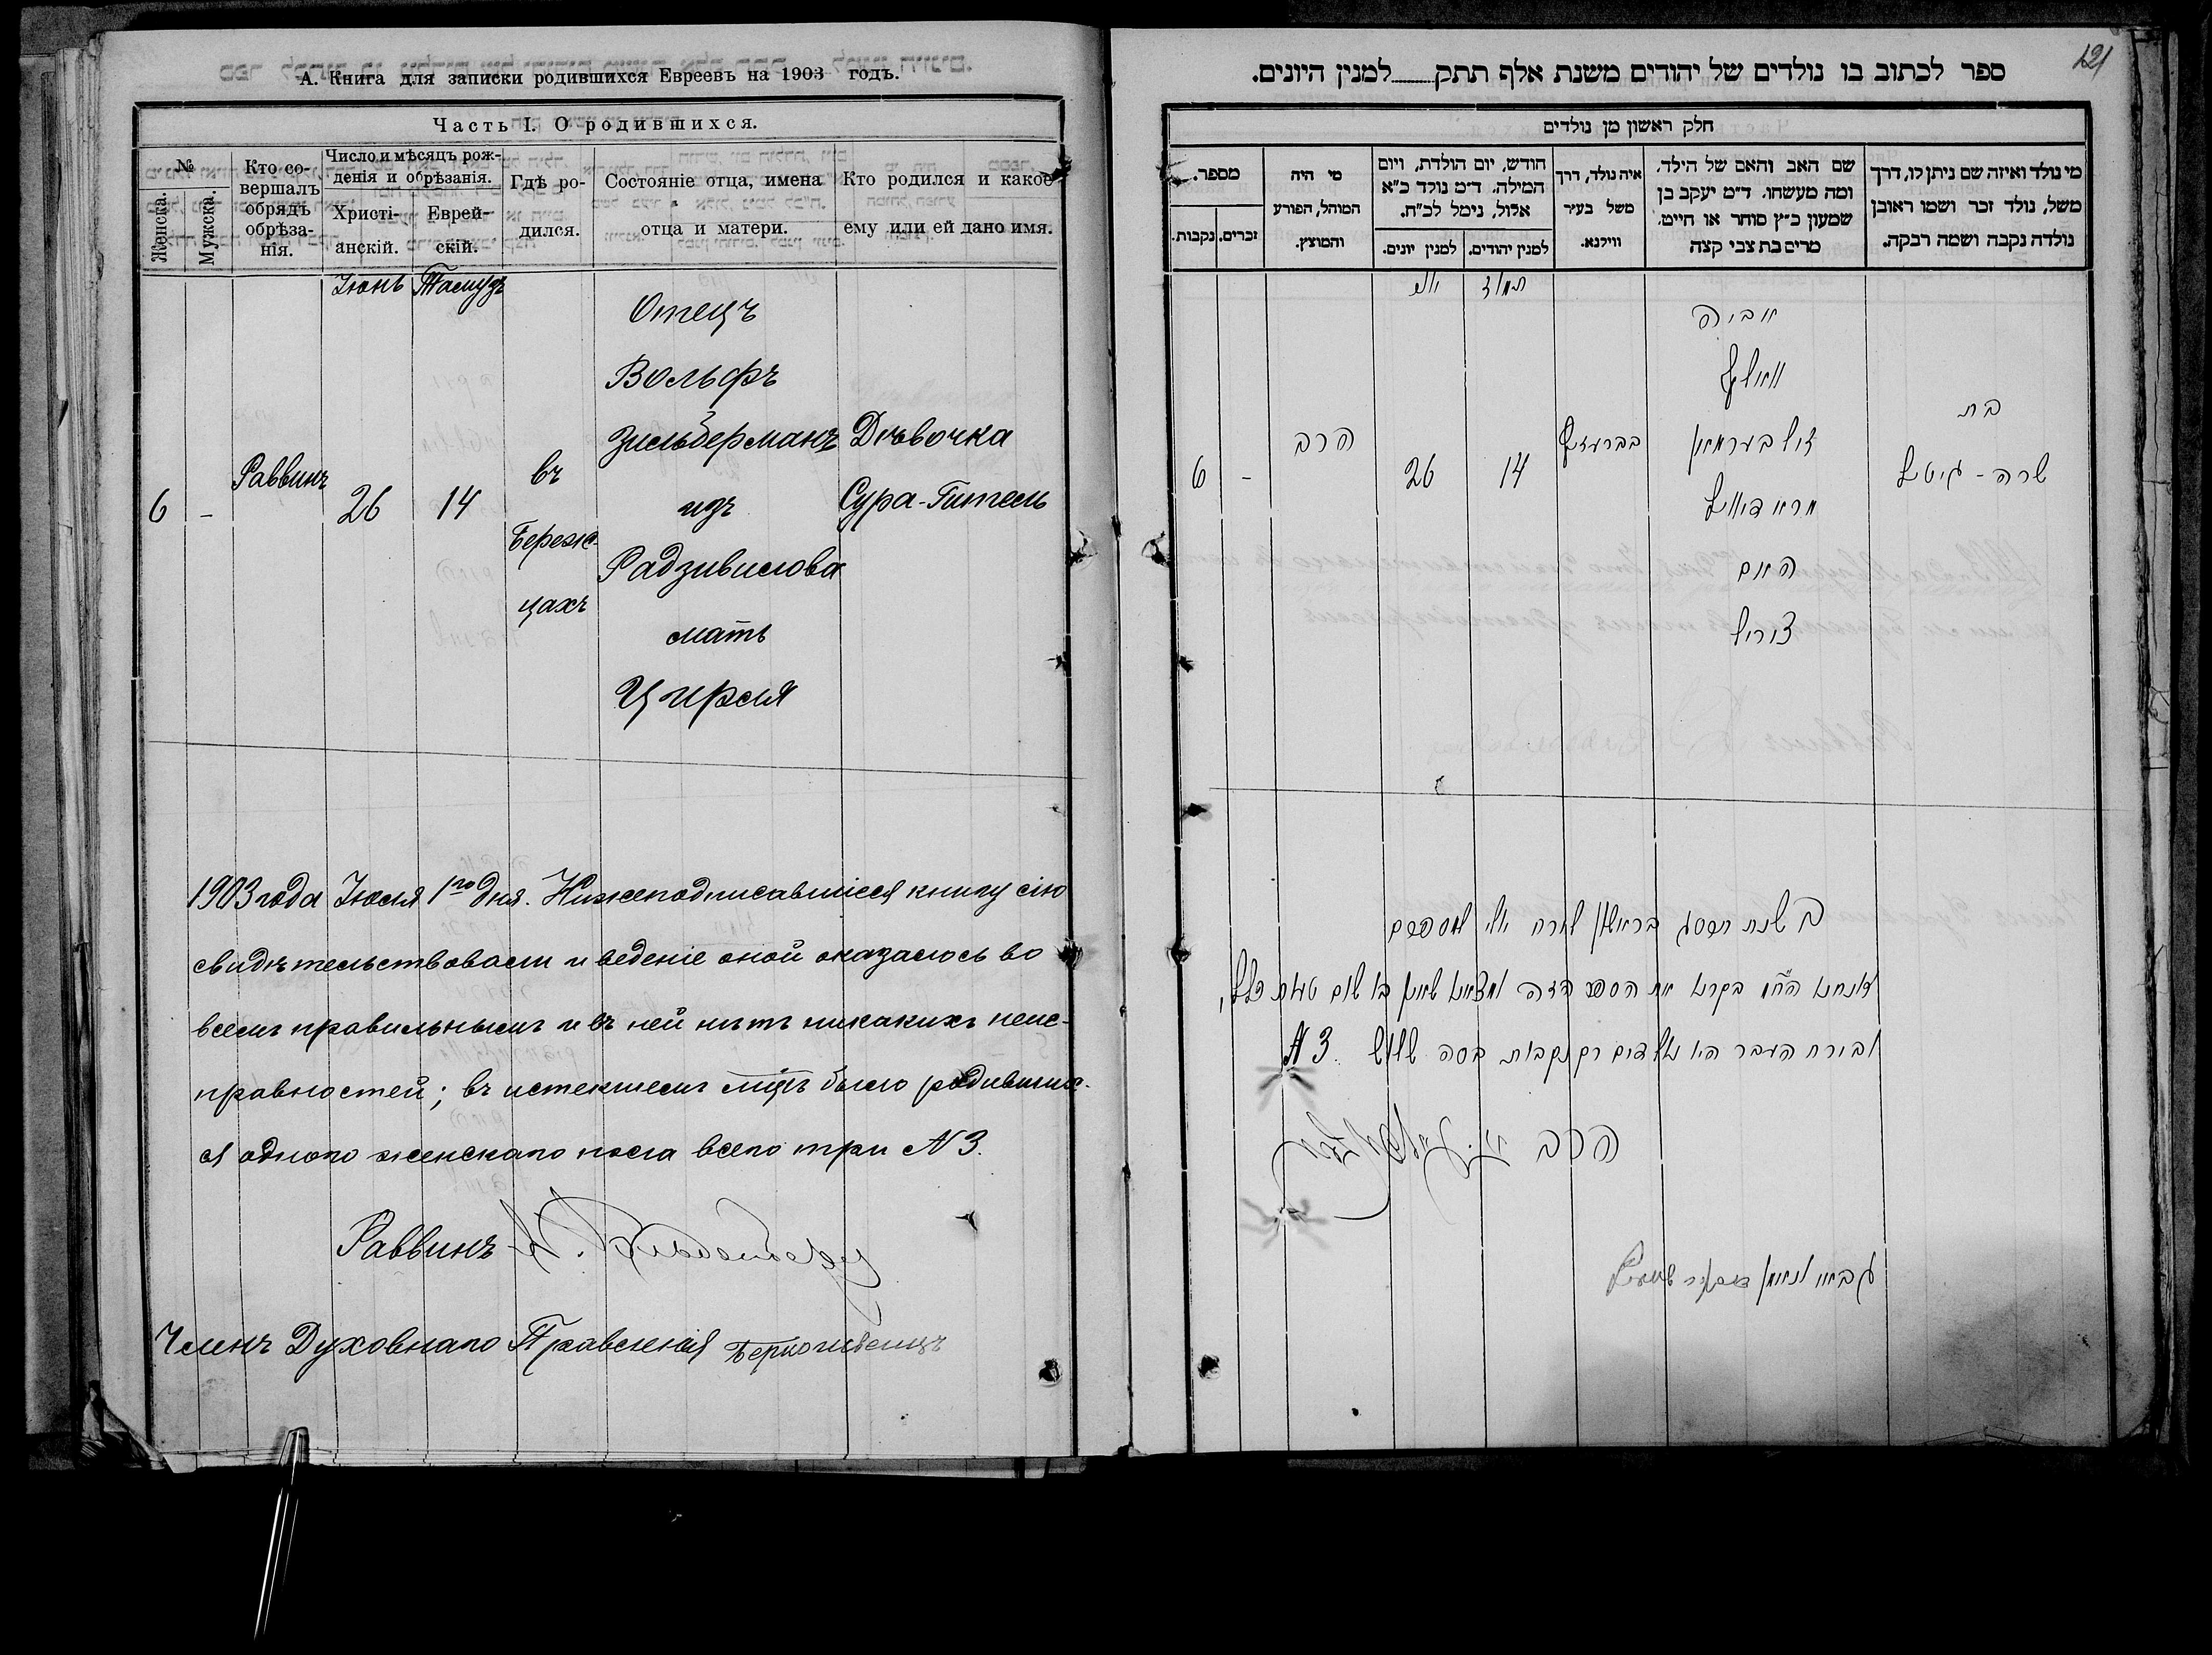 А. Книга для записки родившихся Евреевъ на 1903 годъ.
Часть I. О родившихся.
№
Женска.
Мужска.
Кто со-
вершалъ
обрядъ
обрѣза-
нія.
Число и мѣсяцъ рож-
денія и обрѣзанія.
Христі-
анскій.
Еврей-
скій.
Гдѣ ро-
дился.
Состояніе отца, имена
отца и матери.
Кто родился и какое
ему или ей дано имя.
Іюнь Тамузъ
6
-
Раввинъ
26
14
въ
Береж-
цахъ
Отецъ
Вольфъ
Зильберманъ
изъ
Радзивилова
мать
Цирля
Дѣвочка
Сура-Гитель
1903 года Іюля 1го дня. Нижеподписавшіеся книгу сію
свидѣтельствовали и веденіе оной оказалось во
всемъ правильнымъ и въ ней нѣтъ никакихъ неис-
правностей; въ истекшемъ мцѣ было родивших-
ся одного женскаго пола всего три №3.
Раввинъ
Членъ Духовнаго Правленія
121
ספר לכתוב בו נולדים של יהודים משנת אלף תתק למנין היונים.
חלק ראשון מן נולדים
מי נולד ואיזה שם ניתן לו, דרך
משל, נולד זכר ושמו ראובן
נולדה נקבה ושמה רבקה.
שם האב והאם של הילד.
ומה מעשהו. ד״מ יעקב בן
שמעון כ״ץ סוחר או חיים.
מרים בת צבי קצה
איה נולד, דרך
משל בעיר
ווילנא.
חודש, יום הולדת, ויום
המילה. ד״מ נולד כ״א
אלול, נימל לכ״ח.
למנין יהודים.
למנין יונים.
מי היה
המוהל, הפורע
והמוצץ.
מספר.
זכרים.
נקבות.
תמוז
יוני
בת
שרה - גיטל
אביה
וואלף
זילבערמאן
מראדזיוויל
האם
צירל
14
26
הרב
-
6
ב שנת תרסג בראשון לירח יולי למספרם
אנחנו הח״מ בקרנו את הספר הזה ומצאנו שאין בו שום טעות כלל,
ובירח העבר היו נולדים רק נקבות בסה שלש №3.
הרב